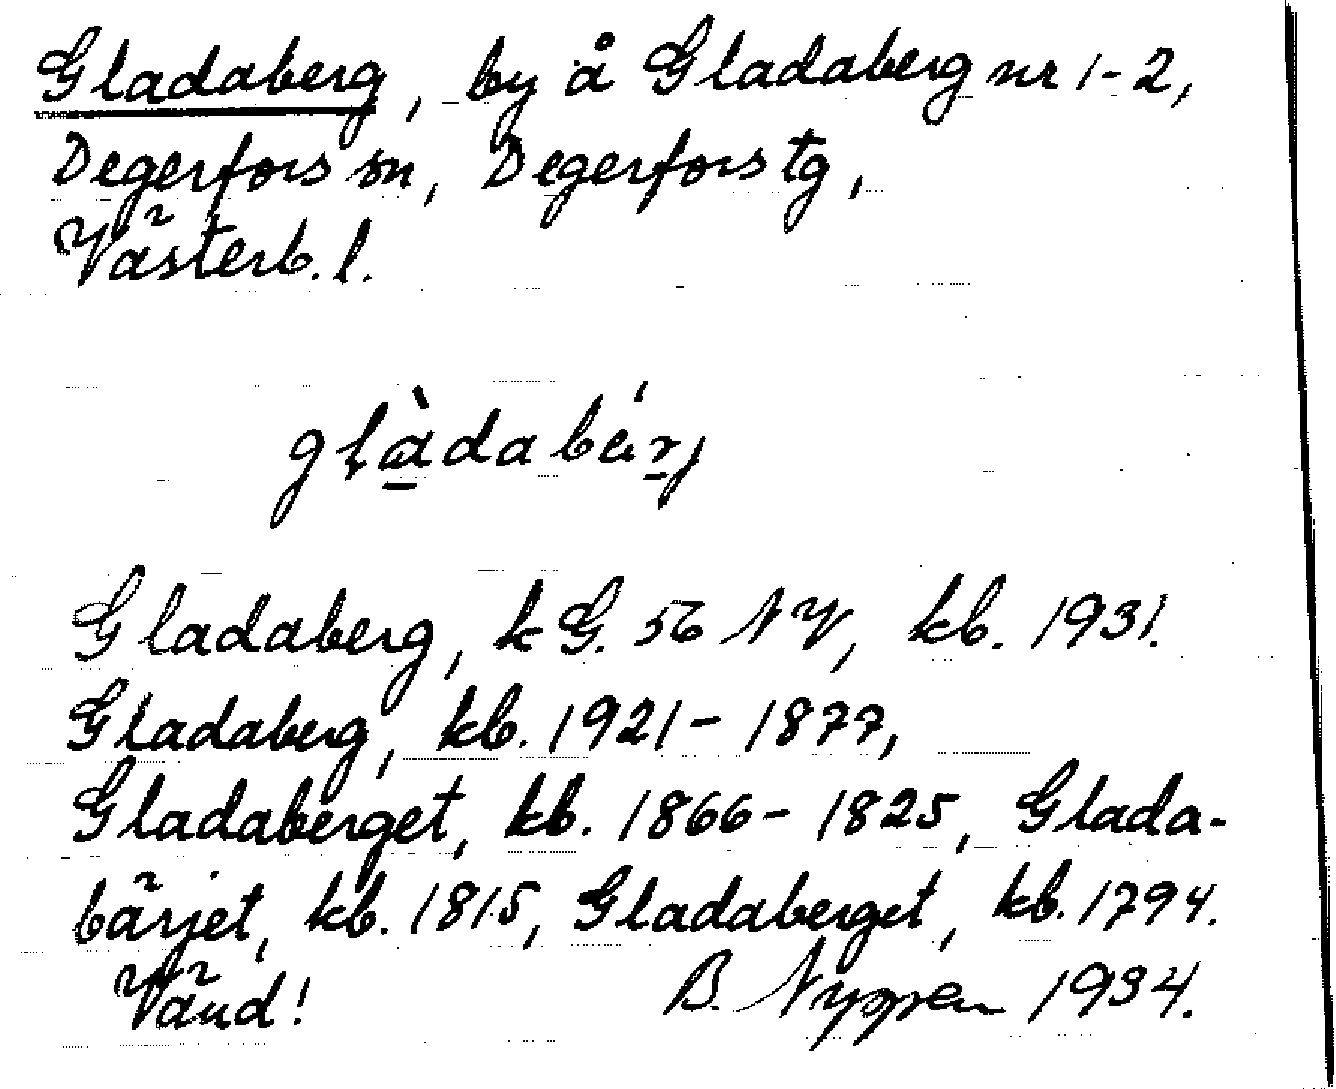 Gladaberg, by å Gladaberg nr 1-2,
Degerfors sn, Degerfors tg,
Västerb. l.
glàdabärj
Gladaberg, k G. 56 NV, kb. 1931.
Gladaberg, kb. 1921-1877,
Gladaberget, kb. 1866-1825, Glada-
bärjet, kb. 1815, Gladaberget, kb. 1794.
Vänd! B. 1934.